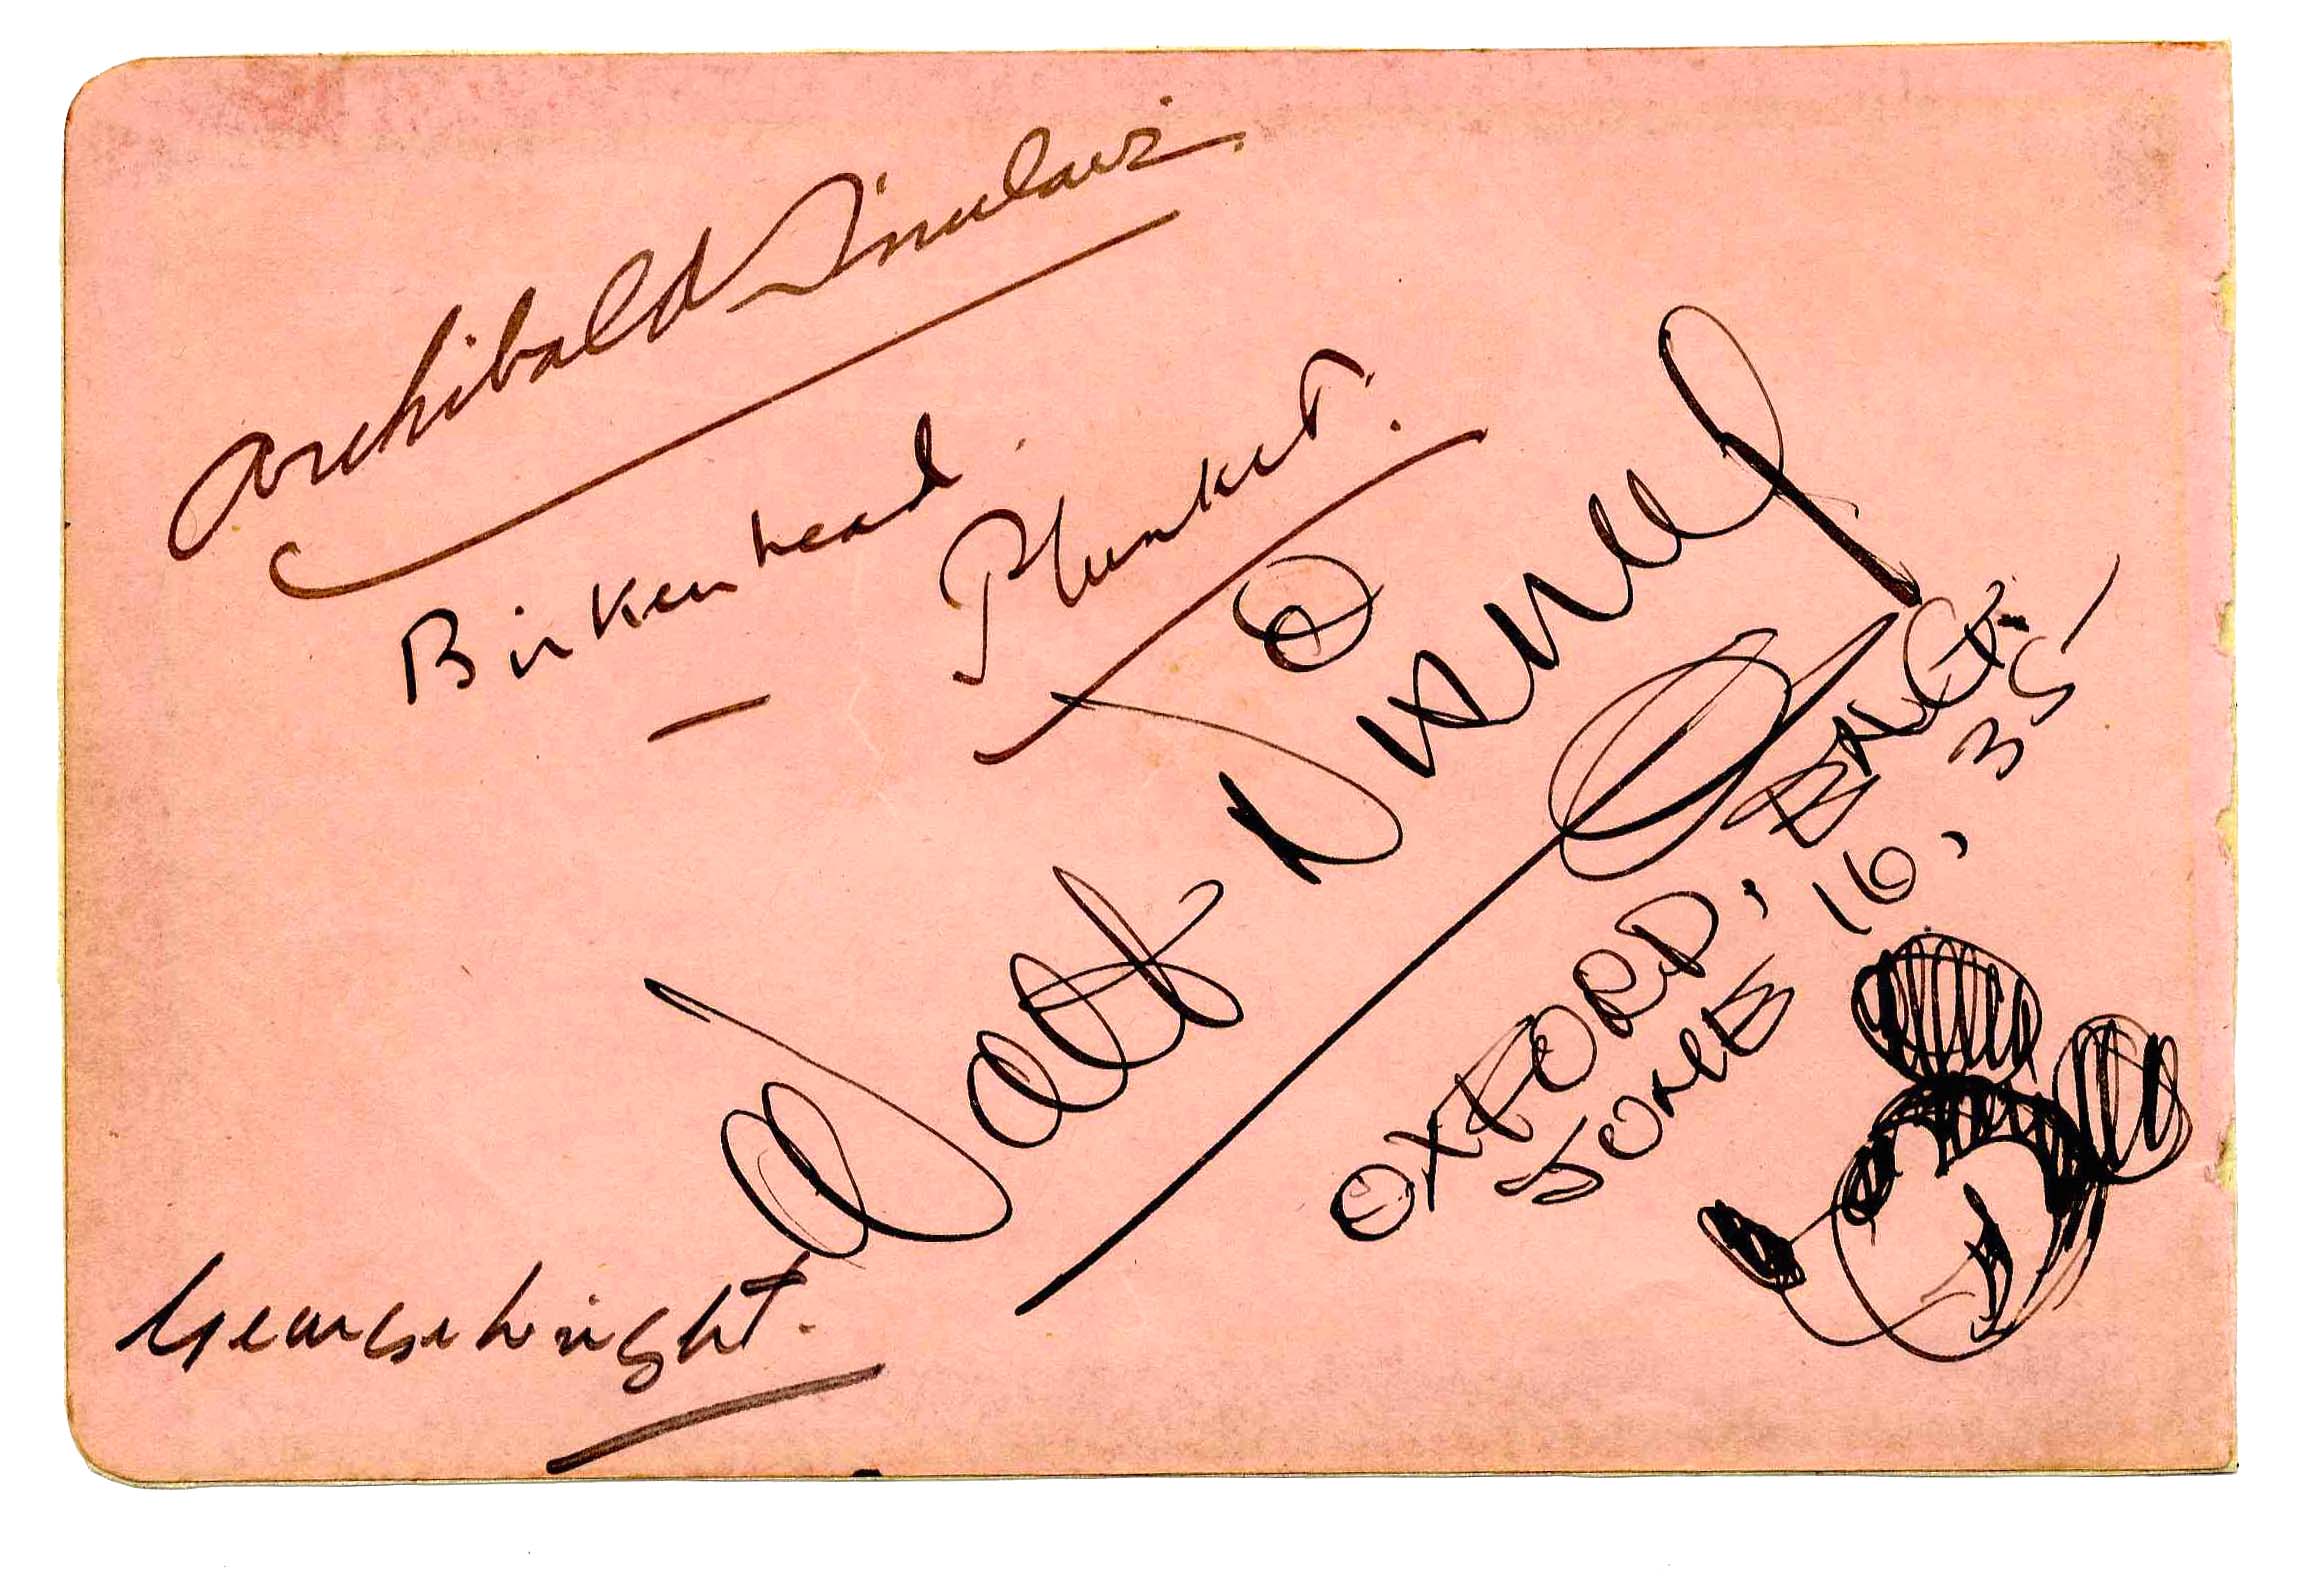 Archibald Sinclair.
Birkenhead.
Plunket.
Walt Disney
OXFORD, ENG.
JUNE 16, 35
George Wright.